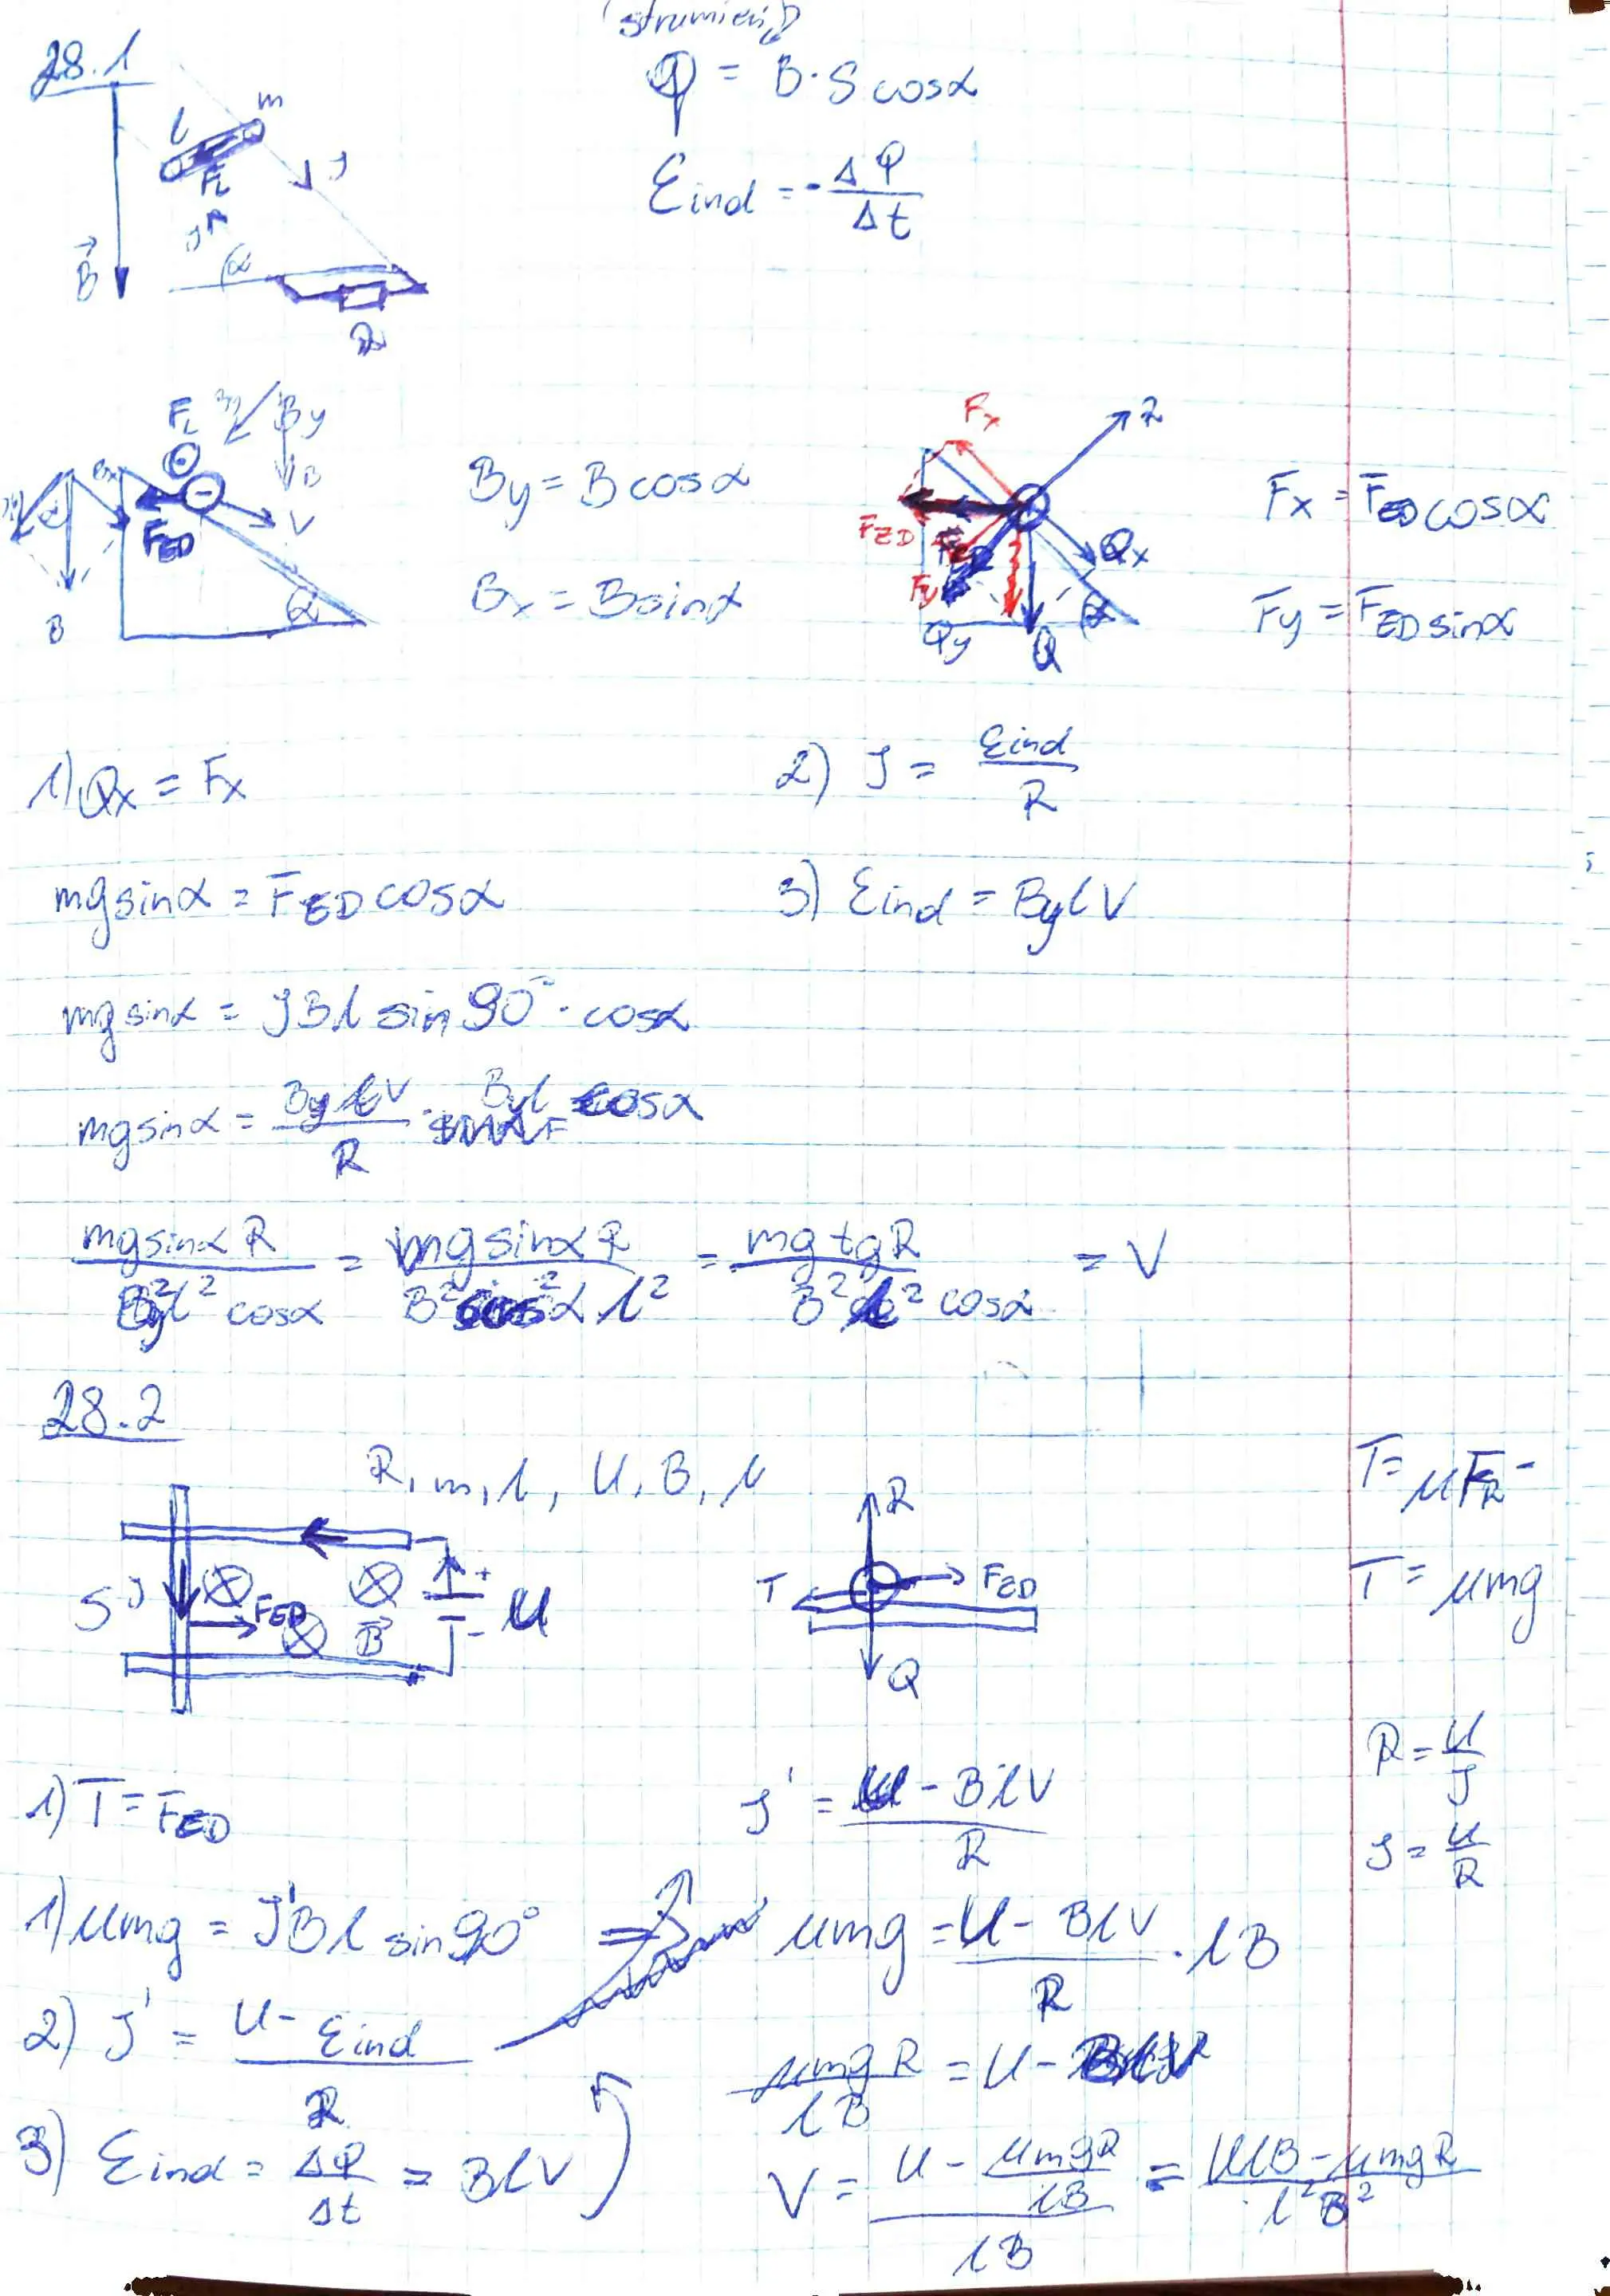 (strumień)
28.1
Φ = B·S cosα
l m
F_L
J
Ɛind = - ΔΦ/Δt
J
B⃗ α
R
F_L By
B
By = B cosα
F_ED V
Bx = B sinα
B α
Fx
F_ED Qx
Fy α
Qy Q
Fx = F_ED cosα
Fy = F_ED sinα
1) Qx = Fx
2) J = Ɛind/R
mg sinα = F_ED cosα
3) Ɛind = By l V
mg sinα = J B l sin 90° · cosα
mg sinα = By l V/R · By l cosα
mg sinα R/By² l² cosα = mg sinα R/B² cos²α l² = mg tg R/B² l² cosα = V
28.2
R, m, l, U, B, μ
T = μ F_R
S J F_ED B⃗ + - U
R T F_ED Q
T = μmg
R = U/J
1) T = F_ED
J' = U - BlV/R
J = U/R
1) μmg = J'Bl sin 90° ⇒
μmg = U - BlV/R · lB
2) J' = U - Ɛind/R
μmgR/lB = U - BlV
3) Ɛind = ΔΦ/Δt = BlV
V = U - μmgR/lB/lB = UlB - μmgR/l²B²